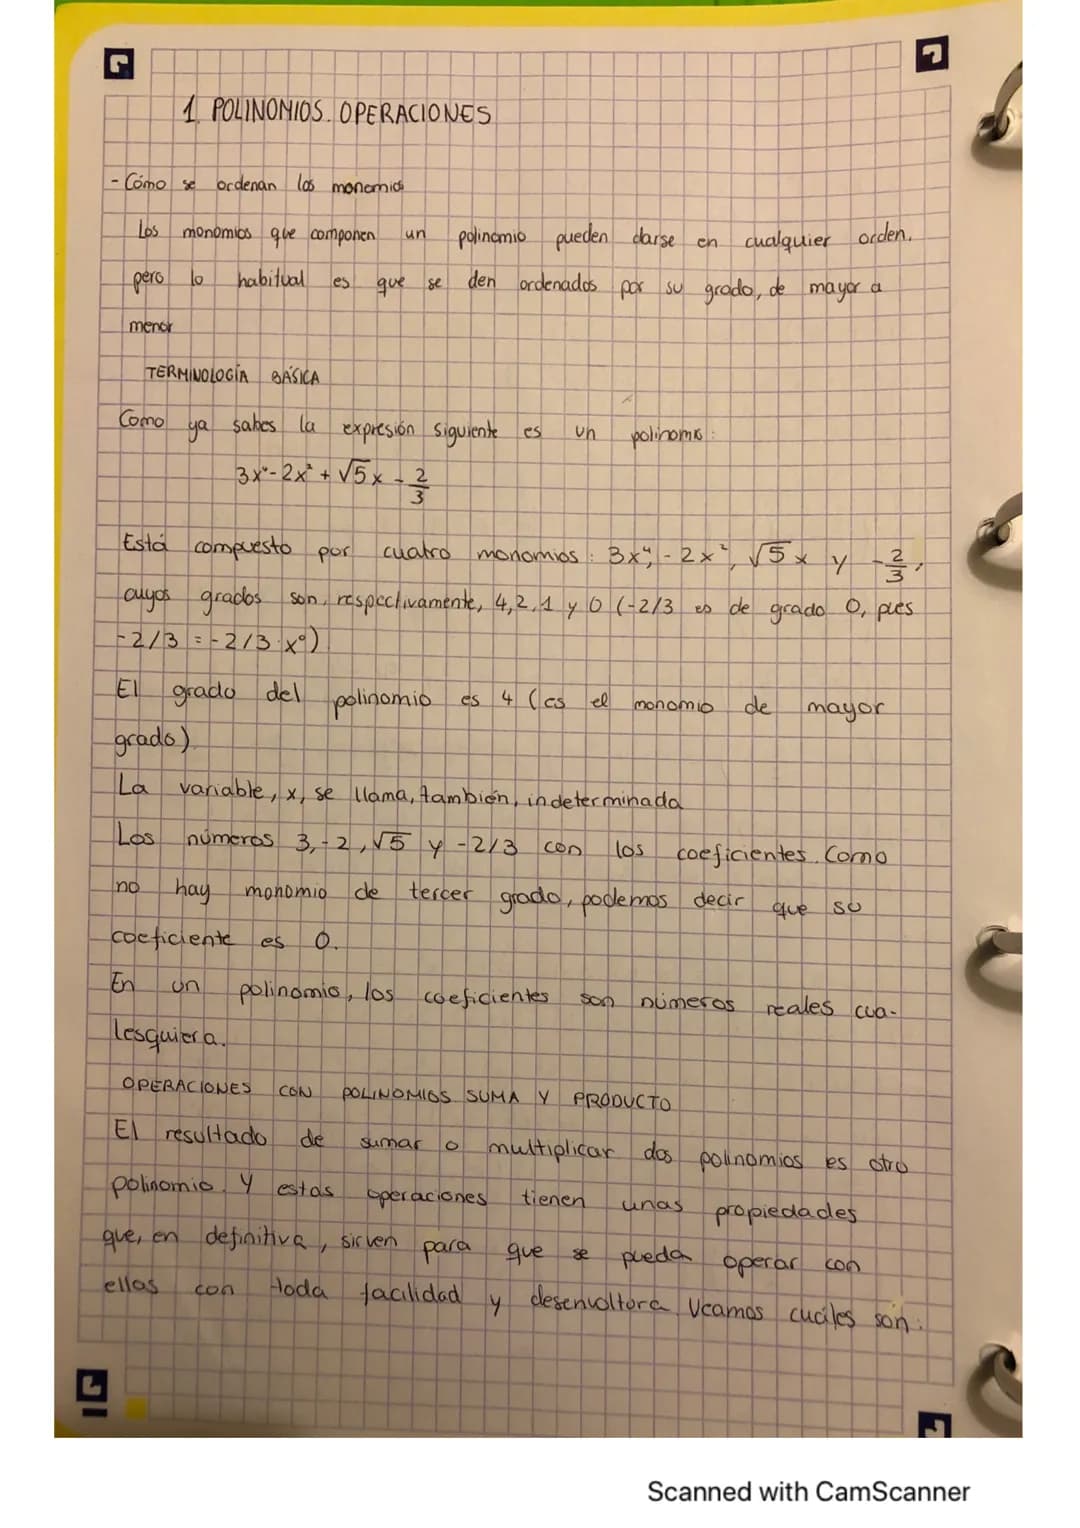 1. POLINOMIOS. OPERACIONES
- Cómo se ordenan los monomios
Los monomios que componen un polinomio pueden darse en cualquier orden,
pero lo habitual es que se den ordenados por su grado, de mayor a
menor
TERMINOLOGÍA BÁSICA
Como ya sabes la expresión siguiente es un polinomio:
3x⁴-2x²+√5x-2/3
Está compuesto por cuatro monomios: 3x⁴, -2x², √5x y -2/3,
cuyos grados son, respectivamente, 4,2,1 y 0 (-2/3 es de grado 0, pues
-2/3 = -2/3·x⁰)
El grado del polinomio es 4 (es el monomio de mayor
grado).
La variable, x, se llama, también, indeterminada
Los números 3, -2, √5 y -2/3 con los coeficientes. Como
no hay monomio de tercer grado, podemos decir que su
coeficiente es 0.
En un polinomio, los coeficientes son números reales cua-
lesquiera.
OPERACIONES CON POLINOMIOS SUMA Y PRODUCTO
El resultado de sumar o multiplicar dos polinomios es otro
polinomio. Y estas operaciones tienen unas propiedades
que, en definitiva, sirven para que se pueda operar con
ellas con toda facilidad y desenvoltura. Veamos cuáles son:
Scanned with CamScanner